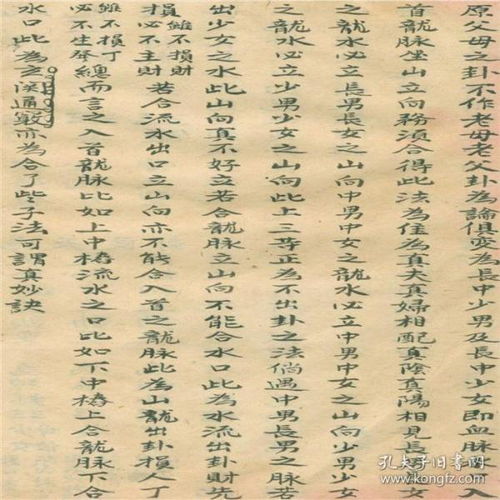 原父母之卦不作老母老父卦為論俱变為長中少男及長中少女即血脉
入
首龍脉坐山立向務須合得此法為佳為真夫真婦相配真陰真陽相見長男
女
之龍水必立長男長女之山向中男中女之龍水必立中男中女之山向少男少女
之龍水必立少男少女之山向此上三等正為不出卦之法倘遇中男長男之脉若
出少女之水此山向真不好立若合龍脉立山向不能合水口此為水流出卦財先
損雖不損財
必不主財
若合流水出口立山向亦不能合入首之龍脉此為山龍出卦損丁
雖不損丁
必不生發
總而言之入首龍脉比如上中樁流水之口比如下中樁上合龍脉下合
水口此為玄関通竅亦為合了些子法可謂真妙訣
孔夫子旧书网
www.kongfz.com